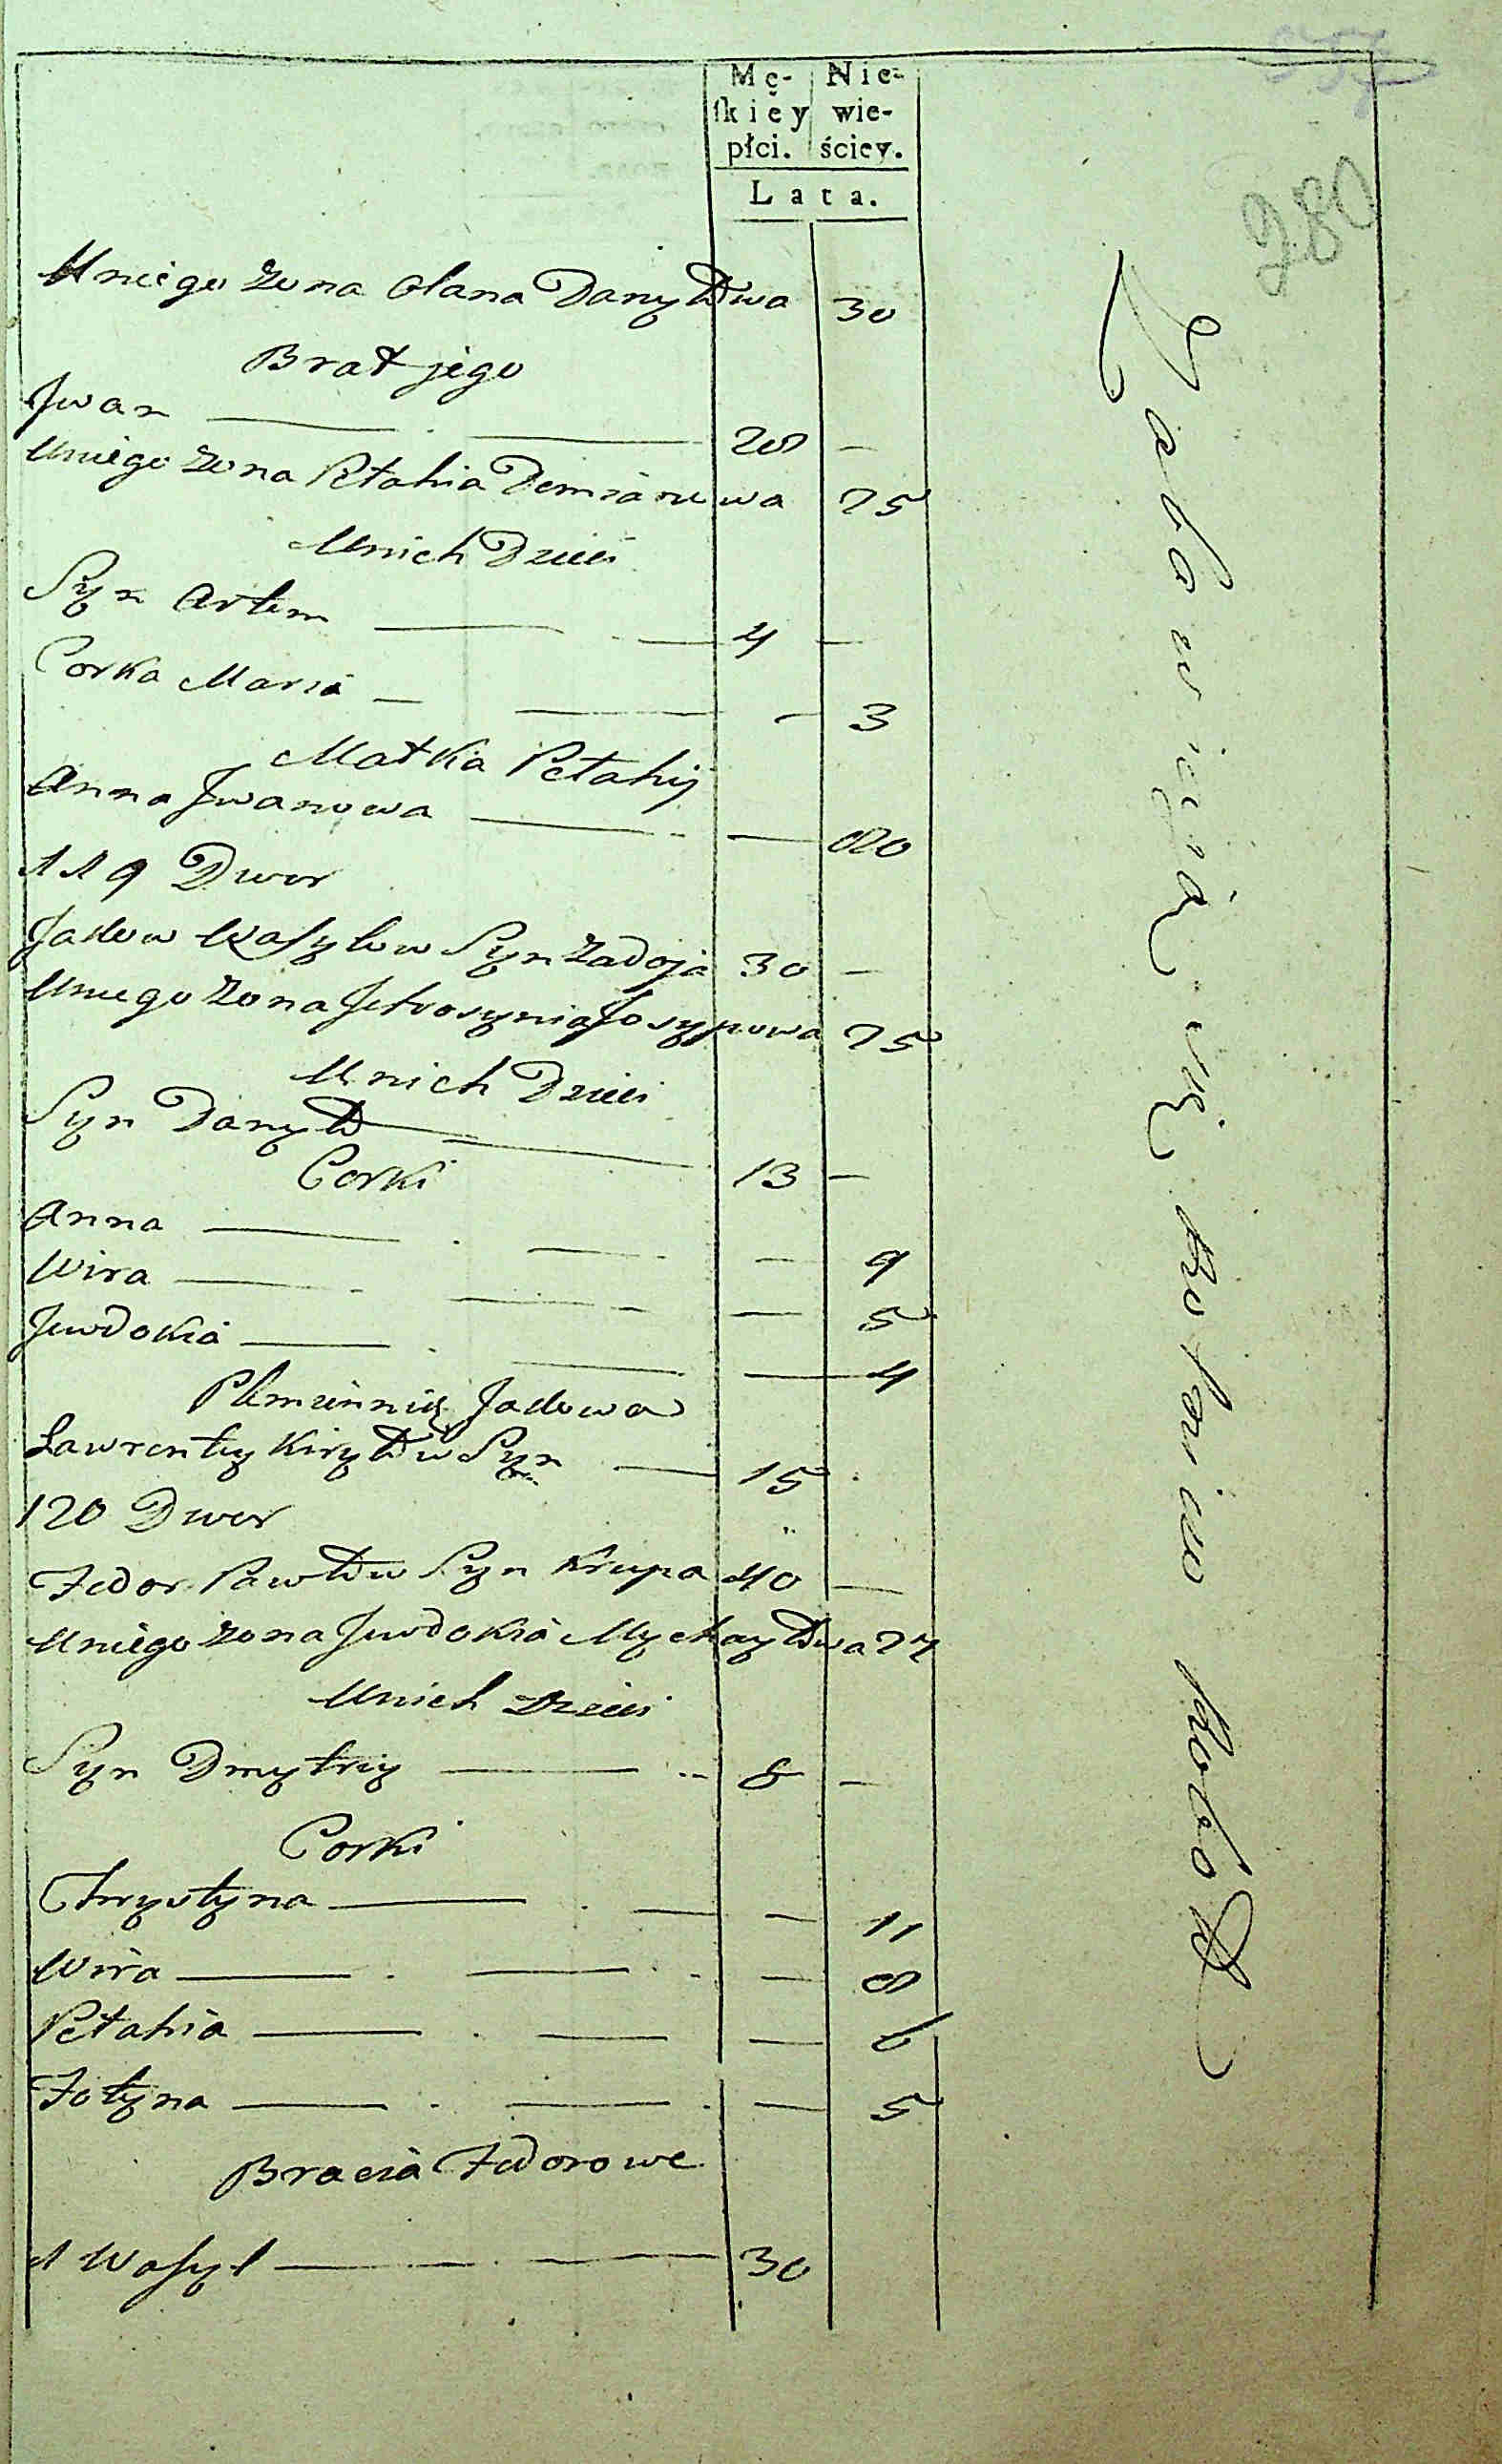 Mę- Nie-
ſkiey wie-
płci. ściey.
Lata.
280
Uniego żona Olana Danyłowa 30
Brat jego
Jwan 28 —
Uniego żona Pełahia Demianowa 25
Unich Dzieci
Syn Artem 4 —
Corka Maria — 3
Matka Pełahij
Anna Jwanowa — 80
119 Dwor
Jadow Wasylow Syn Zadoja 30 —
Uniego żona Jefrosynia Josypowa 25
Unich Dzieci
Syn Danyło 13 —
Corki
Anna — 9
Wira — 5
Jewdokia — 4
Plemiennik Jadowa
Ławrenty Kiryłow Syn 15
120 Dwor
Fedor Pawłow Syn Krupa 40 —
Uniego żona Jewdokia Mychayłowa 27
Unich Dzieci
Syn Dmytriy 8 —
Corki
Chrystyna — 11
Wira — 8
Pełahia — 6
Fotyna — 5
Bracia Fedorowe
1 Wasyl 30
Zabawiają się koło